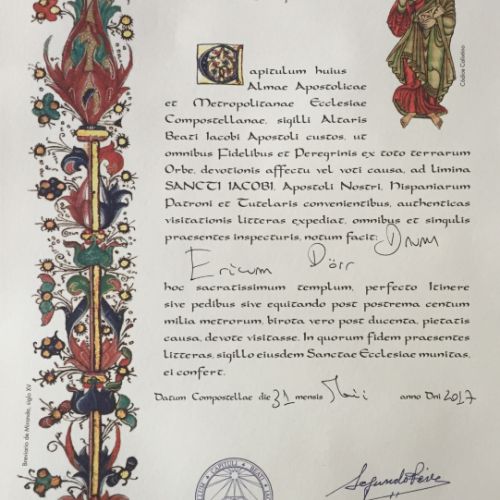 Capitulum huius
Almae Apostolicae
et Metropolitanae Ecclesiae
Compostellanae, sigilli Altaris
Beati Iacobi Apostoli custos, ut
omnibus Fidelibus et Peregrinis ex toto terrarum
Orbe, devotionis affectu vel voti causa, ad limina
SANCTI IACOBI, Apostoli Nostri, Hispaniarum
Patroni et Tutelaris convenientibus, authenticas
visitationis litteras expediat, omnibus et singulis
praesentes inspecturis, notum facit: Dnum
Ericum Dörr
hoc sacratissimum templum, perfecto Itinere
sive pedibus sive equitando post postrema centum
milia metrorum, birota vero post ducenta, pietatis
causa, devote visitasse. In quorum fidem praesentes
litteras, sigillo eiusdem Sanctae Ecclesiae munitas,
ei confert.
Datum Compostellae die 31 mensis Maii anno Dni 2017
Breviario de Miranda, siglo XV
Codice Calixtino
CAPITULI BEATI